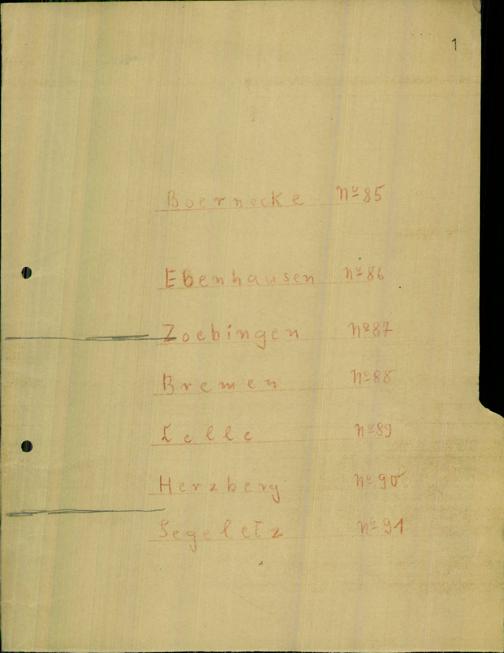 1
Boernecke nº 85
Ebenhausen nº 86
Zoebingen nº 87
Bremen nº 88
Celle nº 89
Herzberg nº 90
Segeletz nº 91